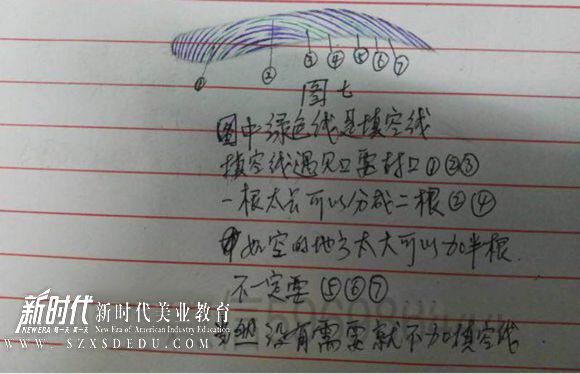 ① ② ③ ④ ⑤ ⑥ ⑦
图七
图中绿色线是填空线
填空线遇见口要封口①②③
一根太长可以分成二根③④
如空的地方太大可以加半根
不一定要⑤⑥⑦
当然没有需要就不加填空线
新时代
NEWERA 每一天 第一天
新时代美业教育
New Era of American Industry Education
WWW.SZXSDEDU.COM